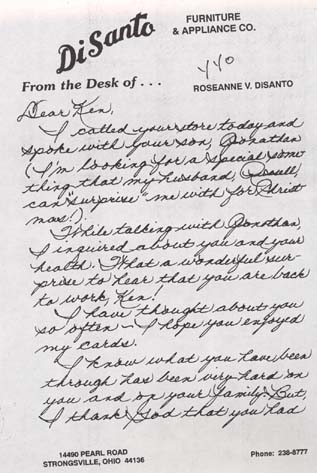 DiSanto
FURNITURE
& APPLIANCE CO.
440
From the Desk of . . .
ROSEANNE V. DISANTO
Dear Ken,
I called your store today and
spoke with your son, Jonathan
(I'm looking for a special some
thing that my husband,
can "surprise" me with for Christ
mas!).
While talking with Jonathan,
I inquired about you and your
health. What a wonderful sur-
prise to hear that you are back
to work, Ken!
I have thought about you
so often - I hope you enjoyed
my cards.
I know what you have been
through has been very hard on
you and on your family. But,
I thank God that you had
14490 PEARL ROAD
STRONGSVILLE, OHIO 44136
Phone: 238-8777